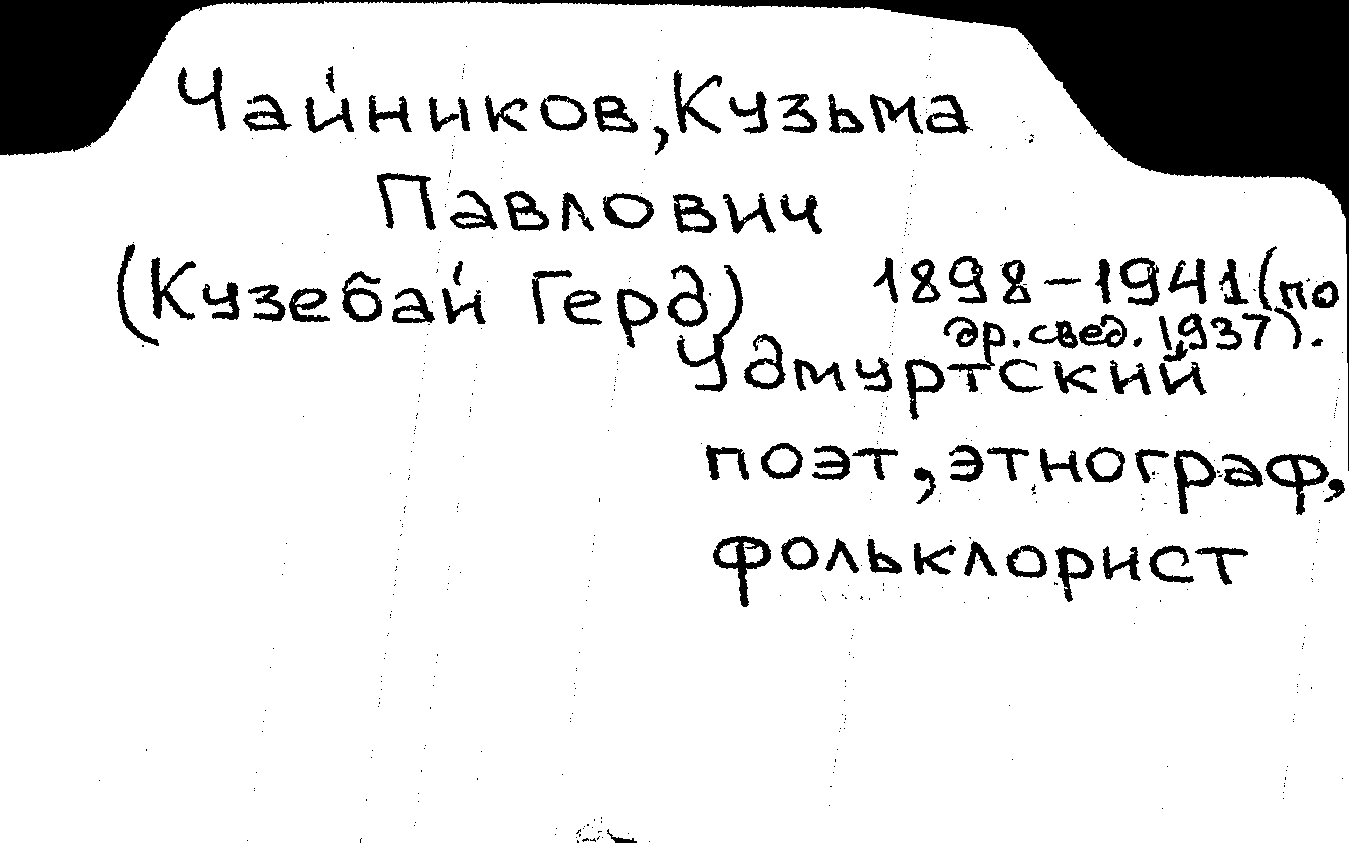 Чайников, Кузьма
Павлович
(Кузебай Герд) 1898-1941 (по
др. свед. 1937).
Удмуртский
поэт, этнограф,
фольклорист